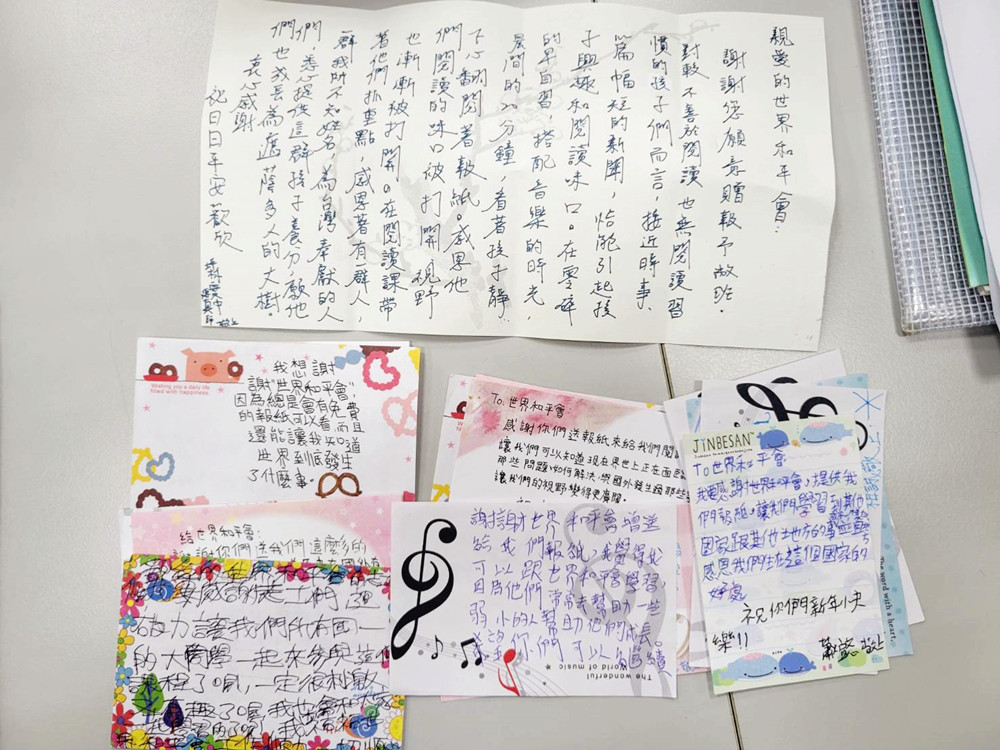 親愛的世界和平會：
謝謝您願意贈報予敝班。
對較不善於閱讀也無閱讀習
慣的孩子們而言，接近時事、
篇幅短的新聞，恰能引起孩
子興趣和閱讀味口。在零碎
的早自習，搭配音樂的時光，
晨間的八分鐘，看著孩子靜
下心翻閱著報紙。感恩他
們閱讀的味口被打開，視野
也漸漸被打開。在閱讀課帶
著他們抓重點，感恩著有一群人，
群我所不知姓名，為台灣奉獻的人
們，悉心提供這群孩子養分，願他
們也成長為遮蔭多人的大樹。
衷心感謝
祝日日平安、歡欣
敬上
Wishing you a daily life
filled with happiness.
我想謝
謝"世界和平會"，
因為總是會有免費
的報紙可以看，而且
還能讓我知道
世界到底發生
了什麼事。
To. 世界和平會
感謝你們送報紙來給我們閱讀
讓我們可以知道現在界世上正在面臨
那些問題、如何解決，與國外發生過那些
讓我們的視野變得更廣闊。
JiNBESAN
To 世界和平會
我要感謝世界和平會，提供我
們報紙，讓我們學習到其他
國家跟其他土地方的事
感恩我們生在這個國家的
好處
祝你們新年快
樂!!
敬上
the word with a heart.
給世界和平會：
謝謝你們送我們這麼多的
謝謝世界和平會贈送
給我們報紙，我覺得我
可以跟世界和平會學習，
因為他們常常去幫助一些
弱小的人幫助他們成長。
希望你們可以繼續
The wonderful
World of music
努力讓我們所有國一
的大同學一起來參與這個
課程了唄，一定很刺激
有趣了唄，我也會和大家